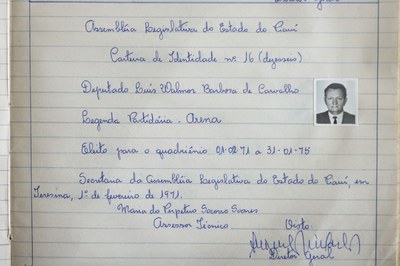 Assembléia Legislativa do Estado do Piauí
Carteira de Identidade nº 16 (dezesseis)
Deputado Luis Walmor Barbosa de Carvalho
Legenda Partidária - Arena
Eleito para o quadriênio 01-02-71 a 31-01-75
Secretaria da Assembléia Legislativa do Estado do Piauí, em
Teresina, 1º de fevereiro de 1971.
Maria do Perpétuo Socorro Soares
Assessor Técnico
Visto:
Diretor Geral